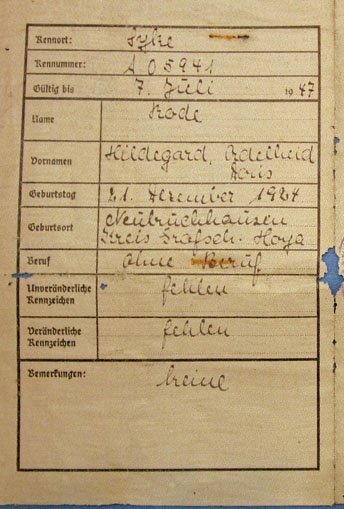 Kennort: Syke
Kennummer: A 05941
Gültig bis 7. Juli 1947
Name Rode
Vornamen Hildegard, Adelheid
Doris
Geburtstag 21. Dezember 1924
Geburtsort Neubruchhausen
Kreis Grafsch. Hoya
Beruf ohne Beruf
Unveränderliche
Kennzeichen fehlen
Veränderliche
Kennzeichen fehlen
Bemerkungen: keine